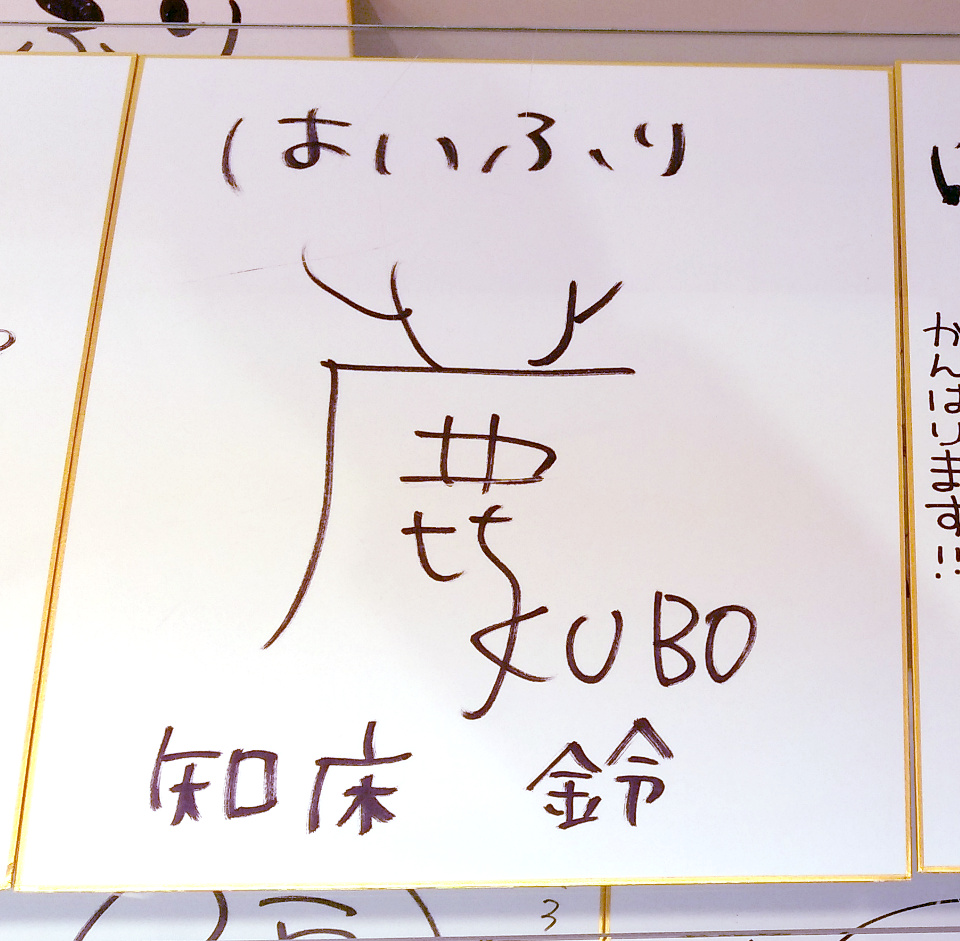 はいふり
鹿
KUBO
知床 鈴
がんばります!!
3